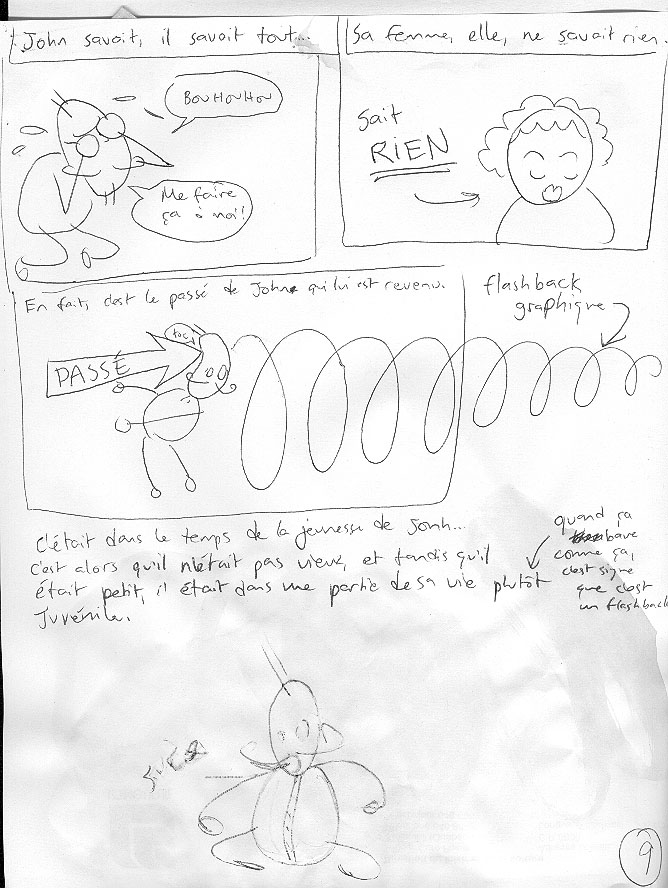 John savait, il savait tout...
Sa femme, elle, ne savait rien.
BOUHOUHOU
Me faire
ça à moi!
Sait
RIEN
En fait, c'est le passé de John qui lui est revenu.
flashback
graphique
toc!
PASSÉ
C'était dans le temps de la jeunesse de Jonh...
C'est alors qu'il n'était pas vieux, et tandis qu'il
était petit, il était dans une partie de sa vie plutôt
Juvénile.
quand ça
bave
comme ça,
c'est signe
que c'est
un flashback
9